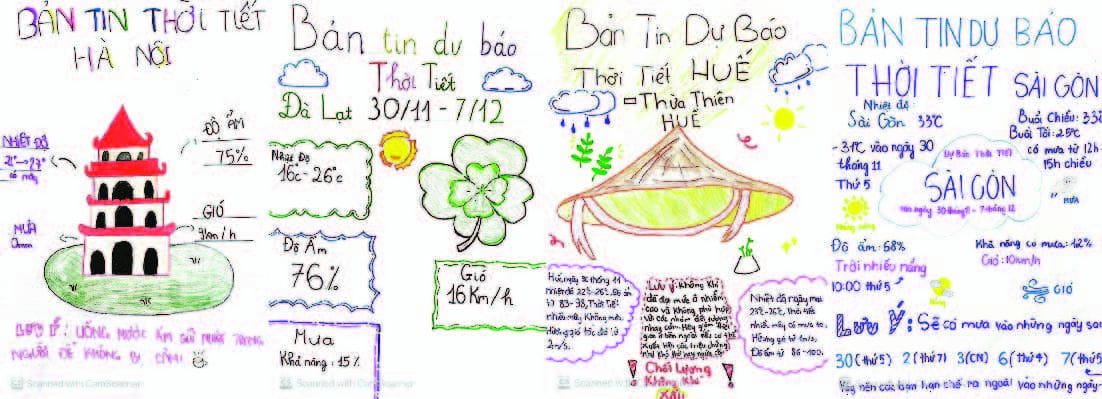 BẢN TIN THỜI TIẾT
HÀ NỘI
NHIỆT ĐỘ
có mây
MƯA
0mm
ĐỘ ẨM
75%
GIÓ
9km/h
LƯU Ý: UỐNG NƯỚC ẤM GIỮ
NGƯỜI ĐỂ KHÔNG BỊ CẢM!
Scanned with CamScanner
Bản tin dự báo
Thời Tiết
Đà Lạt 30/11 - 7/12
Nhiệt Độ
16°c - 26°c
Độ Ẩm
76%
Gió
16 Km/h
Mưa
Khả năng: 15%
Scanned with CamScanner
Bản Tin Dự Báo
Thời Tiết HUẾ
Thừa Thiên
HUẾ
Huế, ngày 30 tháng 11
nhiệt độ 22°C-26°C, độ ẩm
từ 83-98, Thời Tiết
nhiều mây, Không mưa
Hướng gió tốc độ từ
2m/s.
Lưu ý: Không khí
đã đạt mức ô nhiễm
cao và không phù hợp
với các nhóm đối tượng
nhạy cảm. Hãy giảm thời
gian ở bên ngoài nếu có
Chất Lượng
Không Khí
Xấu
Nhiệt độ ngày mai
23°C-26°C, thời tiết
nhiều mây có mưa to.
Hướng gió từ 4m/s.
Độ ẩm từ 86-100.
Scanned with
BẢN TIN DỰ BÁO
THỜI TIẾT SÀI GÒN
Nhiệt độ:
Sài Gòn 33°C
- 31°C vào ngày 30
tháng 11
Thứ 5
Buổi Chiều: 33
Buổi Tối: 25°C
có mưa từ 12h
15h chiều
Dự Báo Thời Tiết
SÀI GÒN
vào ngày 30 tháng 11 - 7 tháng 12
MƯA
Độ ẩm: 68%
Trời nhiều nắng
10:00 thứ 5
Khả năng có mưa: 12%
Gió: 10km/h
GIÓ
Lưu Ý: Sẽ có mưa vào những ngày sau
30 (thứ 5) 2 (thứ 7) 3 (CN) 6 (thứ 4) 7 (thứ 5
nên các bạn hạn chế ra ngoài vào những ngày